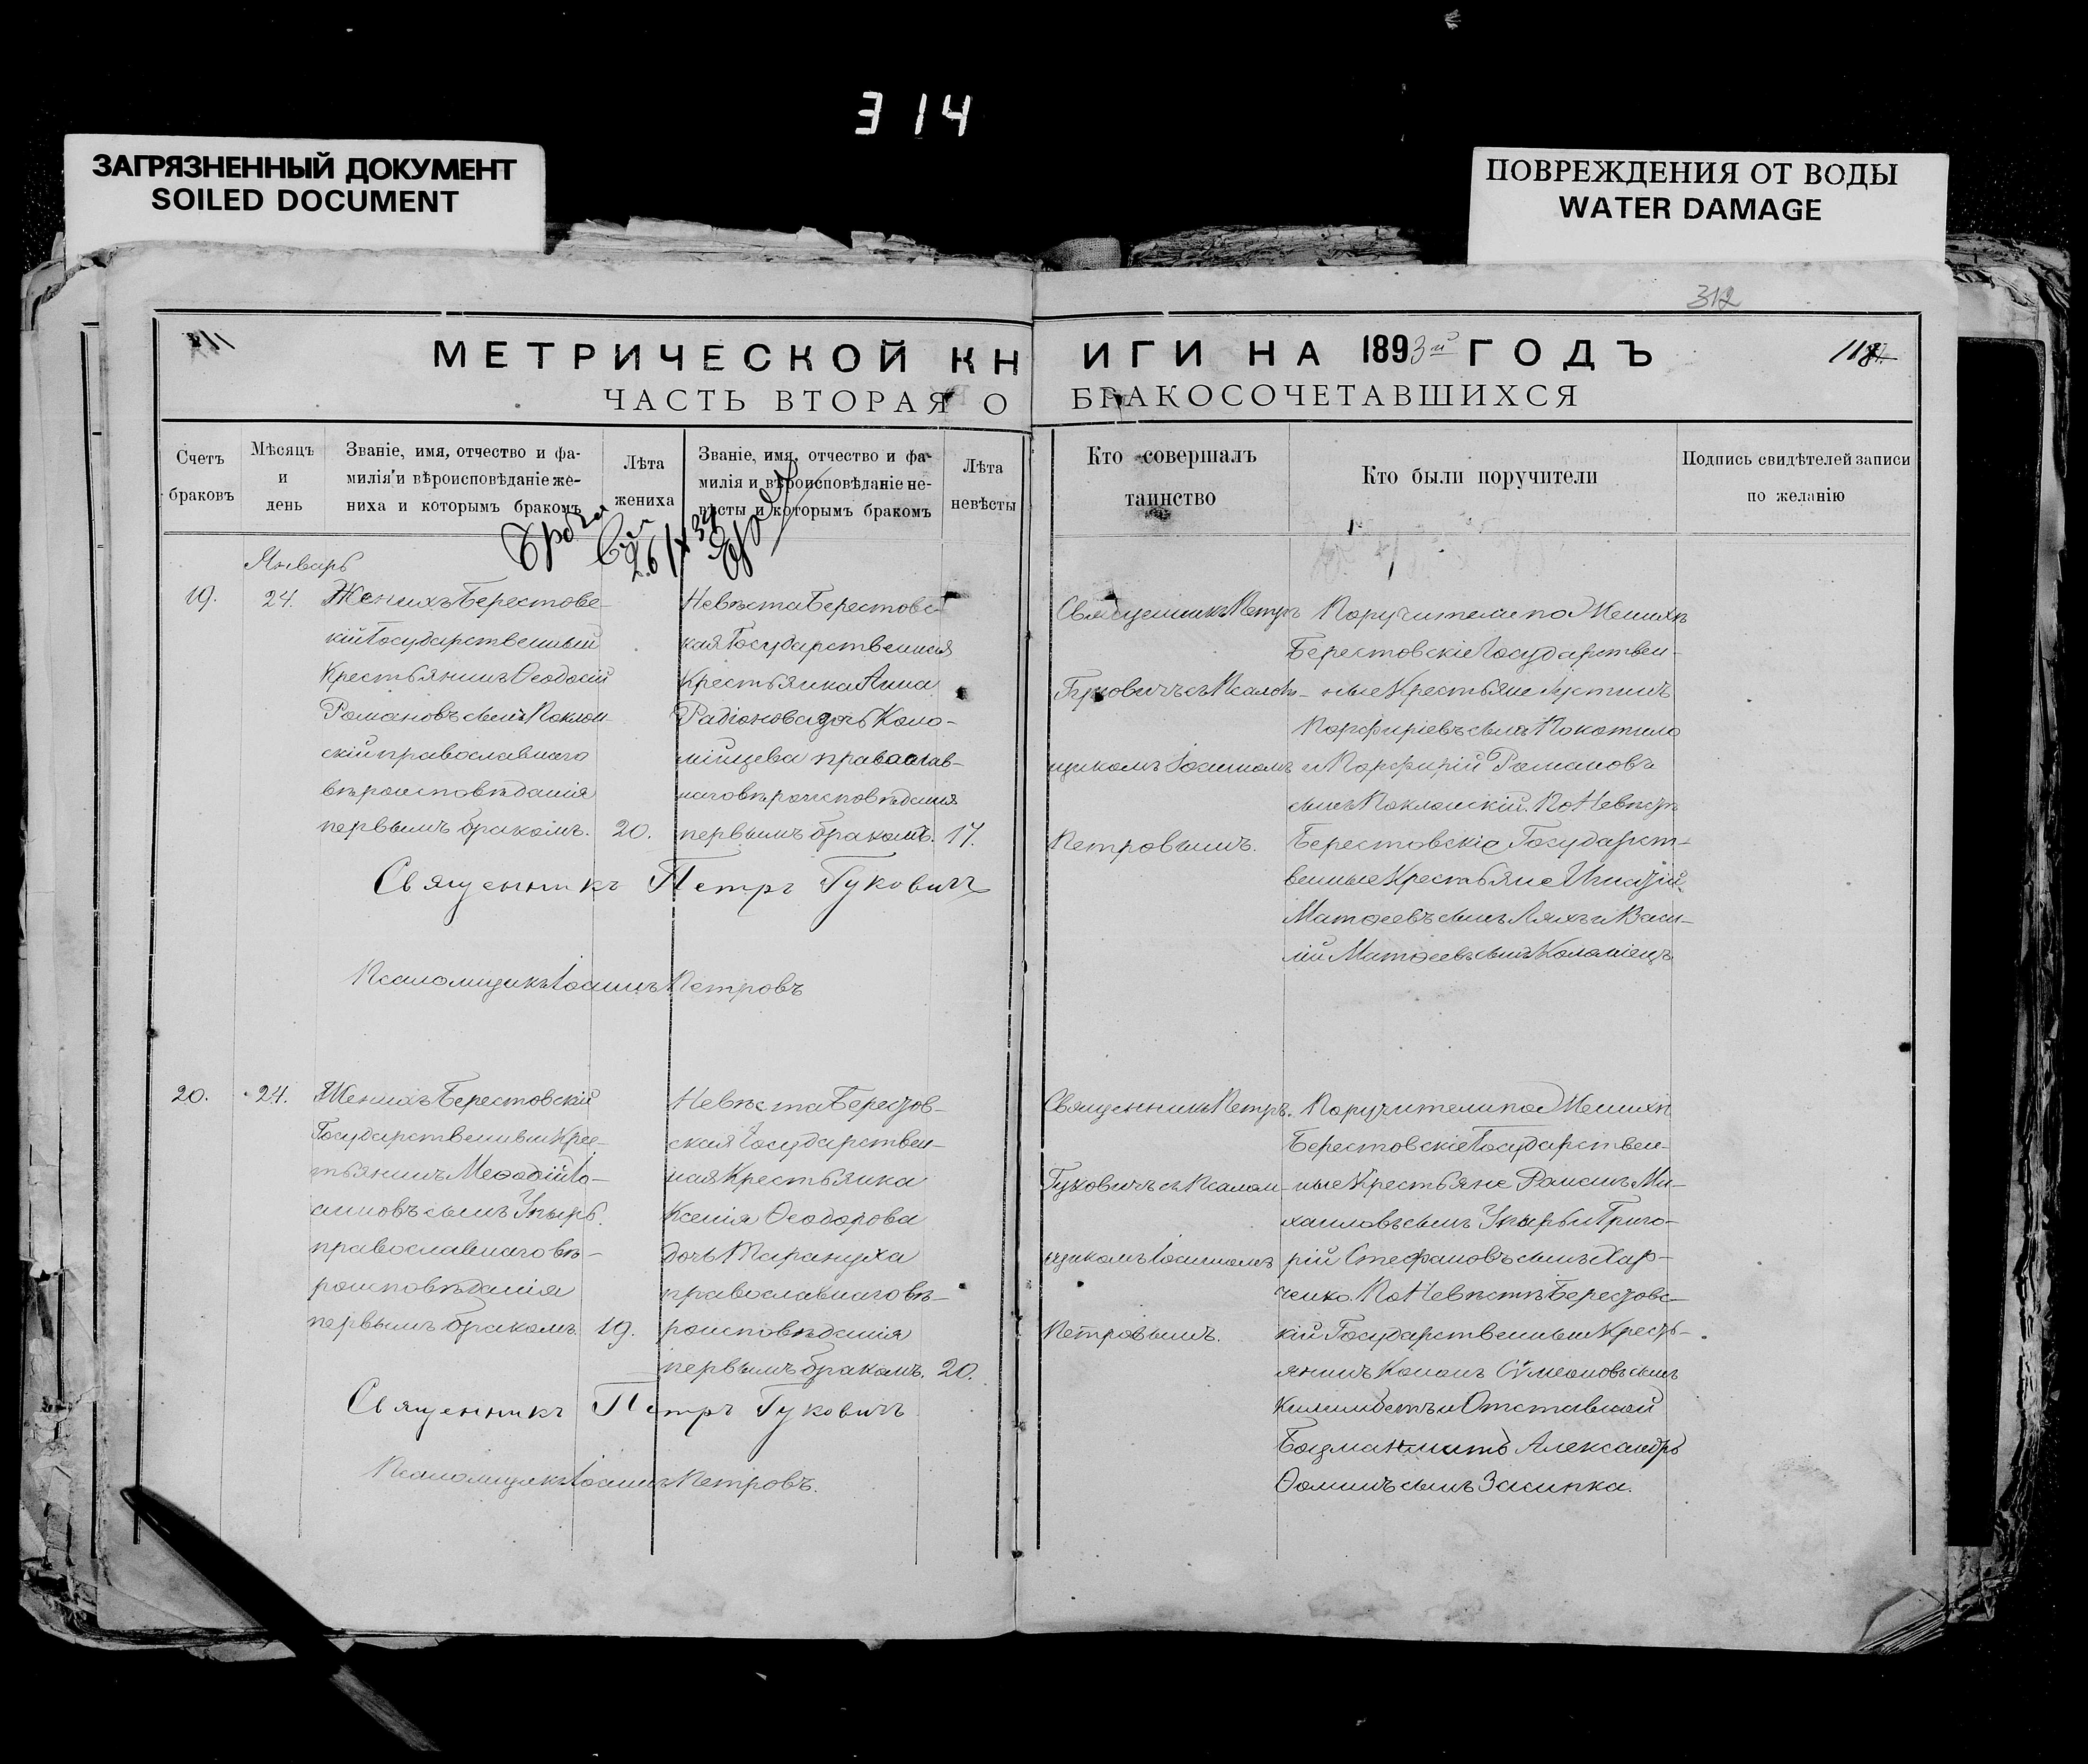 314
ЗАГРЯЗНЕННЫЙ ДОКУМЕНТ
SOILED DOCUMENT
ПОВРЕЖДЕНИЯ ОТ ВОДЫ
WATER DAMAGE
312
МЕТРИЧЕСКОЙ КНИГИ НА 1893й ГОДЪ
118
ЧАСТЬ ВТОРАЯ О БРАКОСОЧЕТАВШИХСЯ
Счетъ
браковъ
Мѣсяцъ
и
день
Званіе, имя, отчество и фа-
милія и вѣроисповѣданіе же-
ниха и которымъ бракомъ
Лѣта
жениха
Званіе, имя, отчество и фа-
милія и вѣроисповѣданіе не-
вѣсты и которымъ бракомъ
Лѣта
невѣсты
Кто совершалъ
таинство
Кто были поручители
Подпись свидѣтелей записи
по желанію
Январь
19.
24.
Женихъ Берестовс-
кій Государственный
Крестьянинъ Ѳеодосій
Романовъ сынъ Поклон-
скій православнаго
вѣроисповѣданія
первымъ бракомъ.
20.
Невѣста Берестовс-
кая Государственная
Крестьянка Анна
Радіонова дочь Коло-
мійцева православ-
наго вѣроисповѣданія
первымъ бракомъ.
17.
Священникъ Петръ
Гуковичъ съ Псалом-
щикомъ Іоанномъ
Петровымъ.
Поручители по Женихѣ
Берестовскіе Государствен-
ные Крестьяне Іустинъ
Порфиріевъ сынъ Покотило
и Порфирій Романовъ
сынъ Поклонскій. По Невѣстѣ
Берестовскіе Государст-
венные Крестьяне Игнатій
Матѳеевъ сынъ Ляхъ и Васи-
лій Матѳеевъ сынъ Коломіецъ
Священникъ Петръ Гуковичъ
Псаломщикъ Іоаннъ Петровъ
20.
24.
Женихъ Берестовскій
Государственный Крес-
тьянинъ Меѳодій Іо-
анновъ сынъ Упырь
православнаго вѣ-
роисповѣданія
первымъ бракомъ.
19.
Невѣста Берестов-
ская Государствен-
ная Крестьянка
Ксенія Ѳеодорова
дочь Тарануха
православнаго вѣ-
роисповѣданія
первымъ бракомъ.
20.
Священникъ Петръ
Гуковичъ съ Псалом-
щикомъ Іоанномъ
Петровымъ.
Поручители по Женихѣ
Берестовскіе Государствен-
ные Крестьяне Романъ Ми-
хаиловъ сынъ Упырь и Григо-
рій Стефановъ сынъ Хар-
ченко. По Невѣстѣ Берестовс-
кій Государственный Кресть-
янинъ Кононъ Сѵмеоновъ сынъ
и Отставной
Александръ
Ѳоминъ сынъ Засипка.
Священникъ Петръ Гуковичъ
Псаломщикъ Іоаннъ Петровъ.